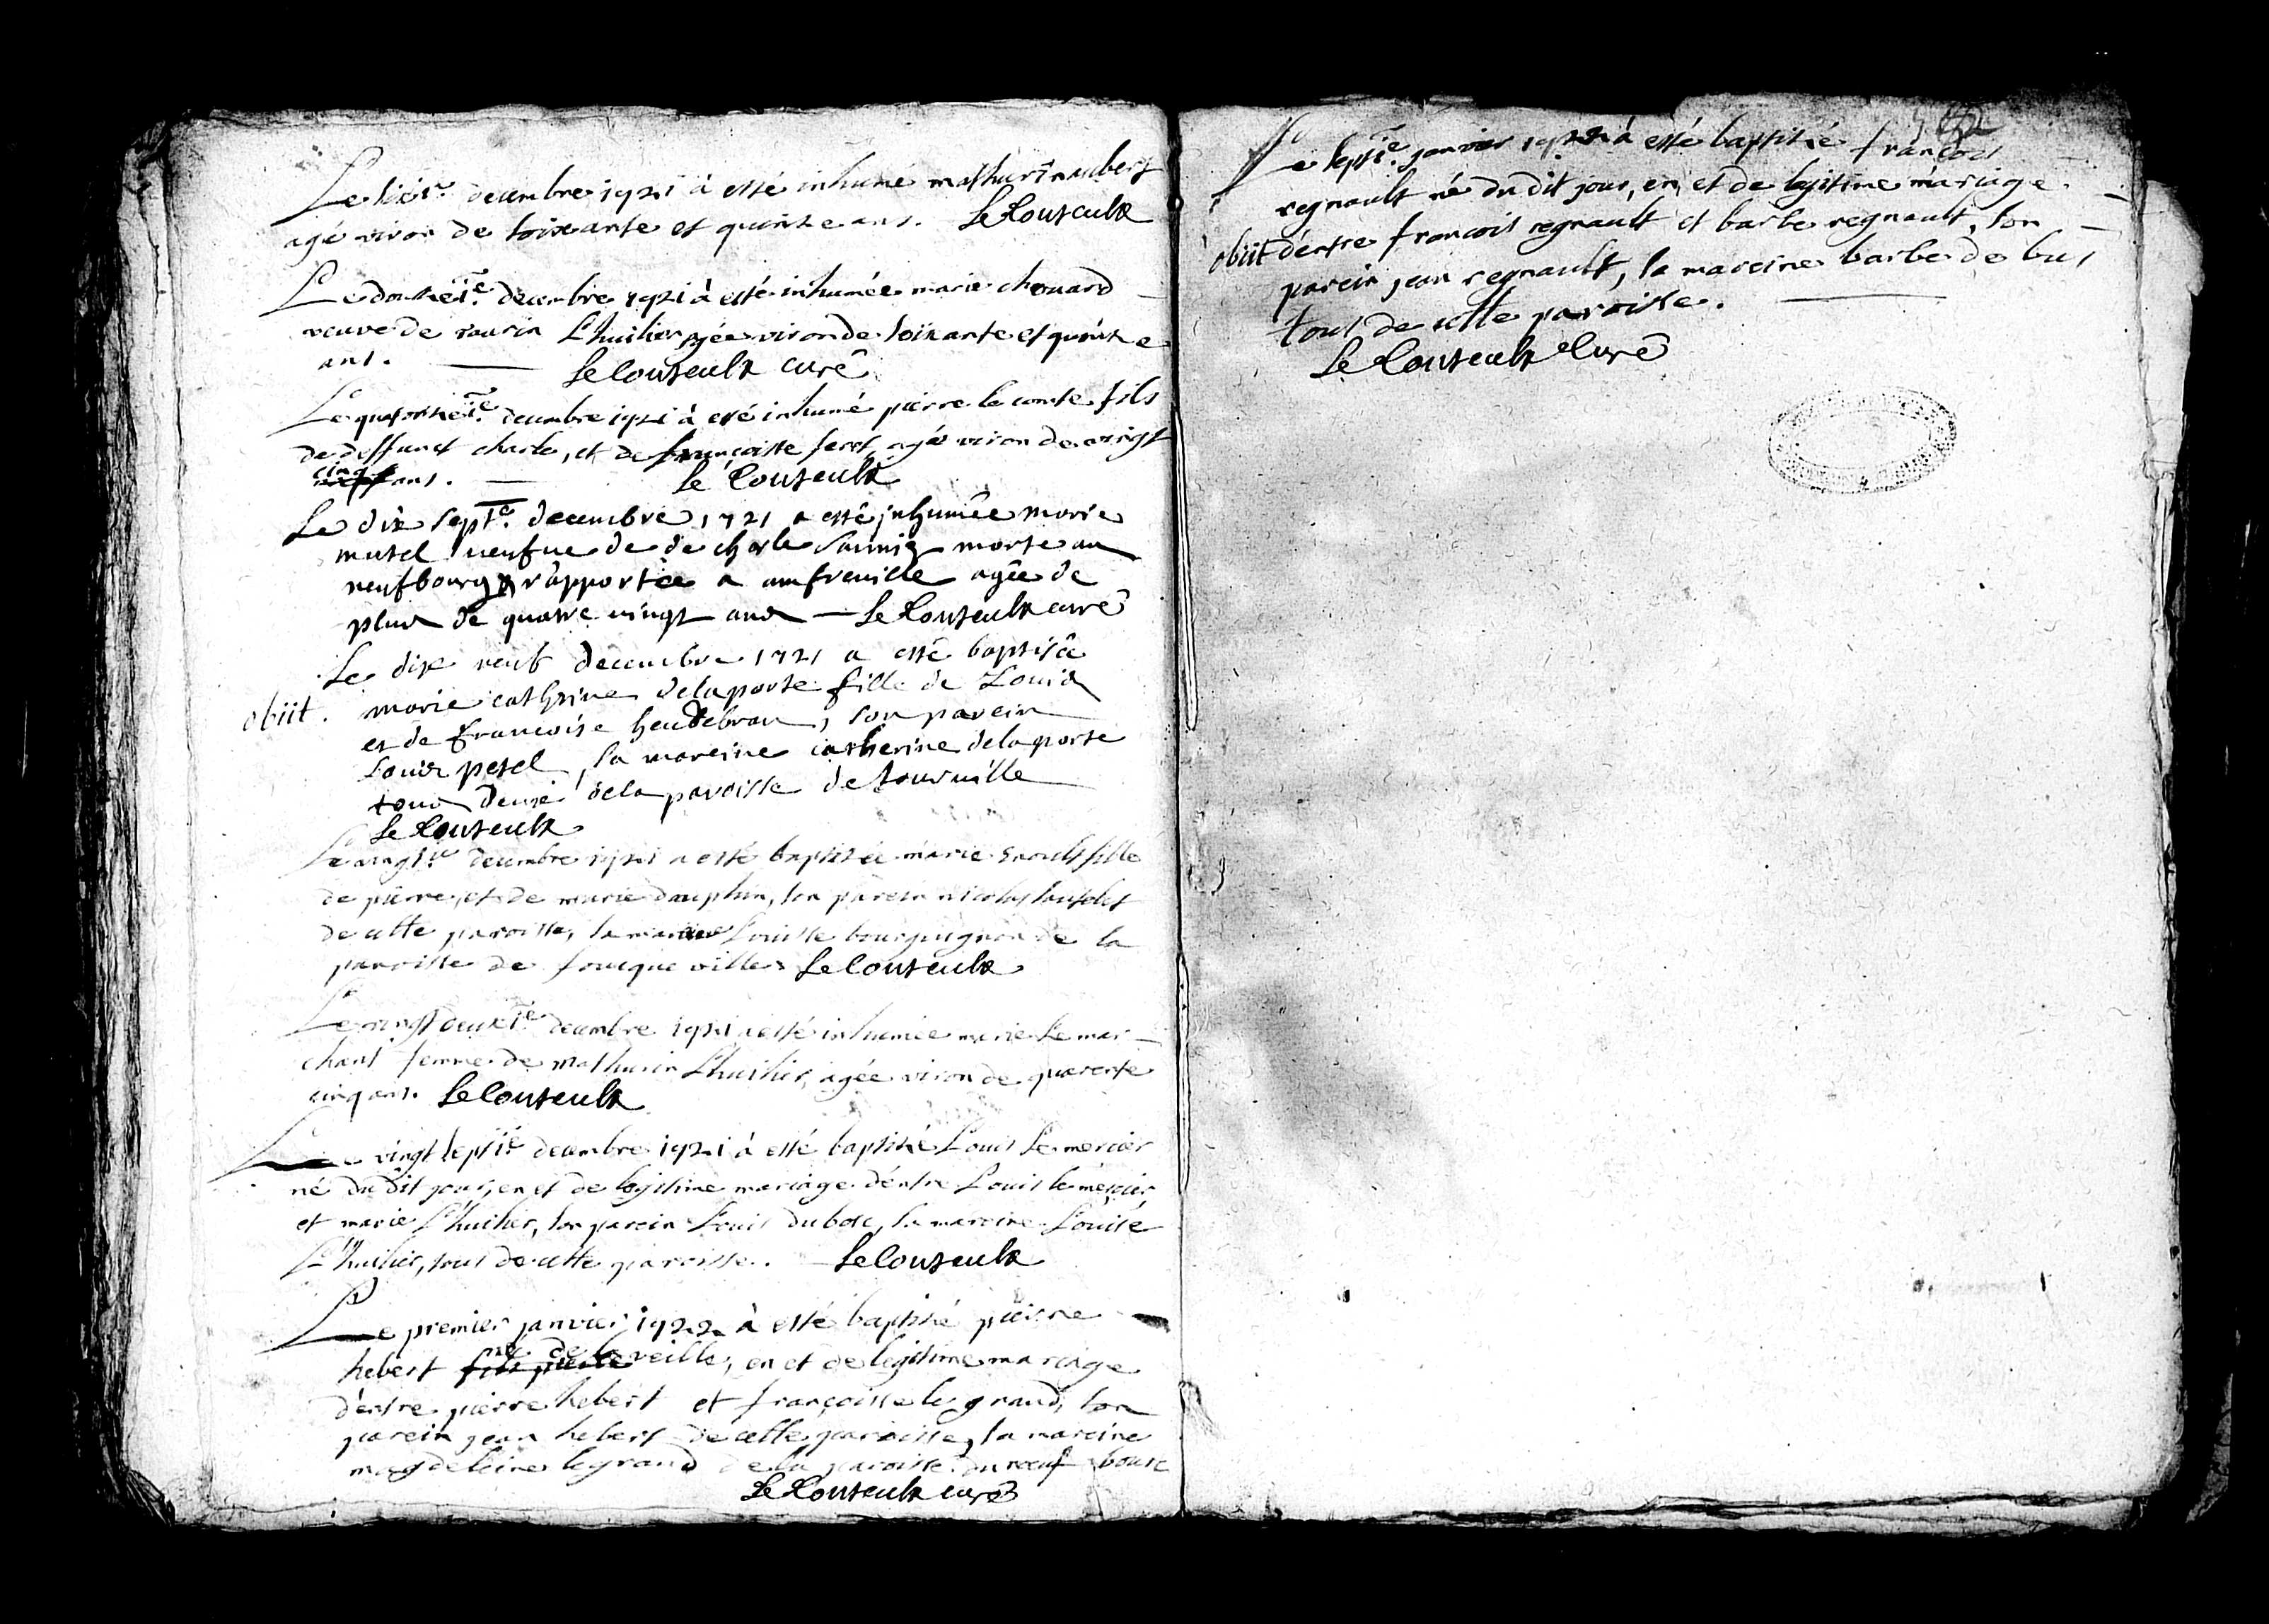 Le siéz.e decembre 1721 à esté inhumé mathurin aubert
agé viron de soixante et quinze ans. Le Couteulx
Le douzei.e decembre 1721 à esté inhumée marie chouard
veuve de taurin L'huilier agée viron de soixante et quinze
ans. Le Couteulx curé
Le quatorzei.e decembre 1721 à esté inhumé pierre le comte fils
de deffunct charle, et de françoisse agé viron de vingt
cinq ans. Le Couteulx
Le dix sept.e decembre 1721 a esté inhumée marie
mutel veufue de de charle morte au
neufbourg rapportée a amfreuille agée de
plus de quatre vingt ans Le Couteulx curé
Le dix neuf decembre 1721 a esté baptisée
marie cathrine delaporte fille de Louis
obiit. et de francoise heudebran, son parein
Louis petel, la mareine catherine delaporte
tous deux dela paroisse de tourville
Le Couteulx
Le vingt.e decembre 1721 a esté baptisée marie fille
de pierre, et de marie dauphin, son parein nicolas
de cette paroisse, la mareine Louisse bourguignon de la
paroisse de fouqueville Le Couteulx
Le vingt deuxi.e decembre 1721 a esté inhumée marie Le mar-
chant femme de Mathurin L'huilier, agée viron de quarente
cinq ans. Le Couteulx
Le vingt septi.e decembre 1721 à esté baptisé Louis Le mercier
né du dit jour, en et de legitime mariage d'entre Louis le mercier
et marie L'huilier, son parein Louis dubosc, la mareine Louise
L'huilier, tous de cette paroisse. Le Couteulx
Le premier janvier 1722 à esté baptisé pierre
hebert né de la veille, en et de legitime mariage
d'entre pierre hebert et françoisse le grand, son
parein jean hebert de cette paroisse, la mareine
magdeleine legrand de la paroisse du neuf bourc
Le Couteulx curé
Le septi.e janvier 1722 à esté baptisé francois
regnault né du dit jour, en et de legitime mariage
obiit d'entre francois regnault et barbe regnault, son
parein jean regnault, la mareine barbe de bus
tous de cette paroisse.
Le Couteulx Curé